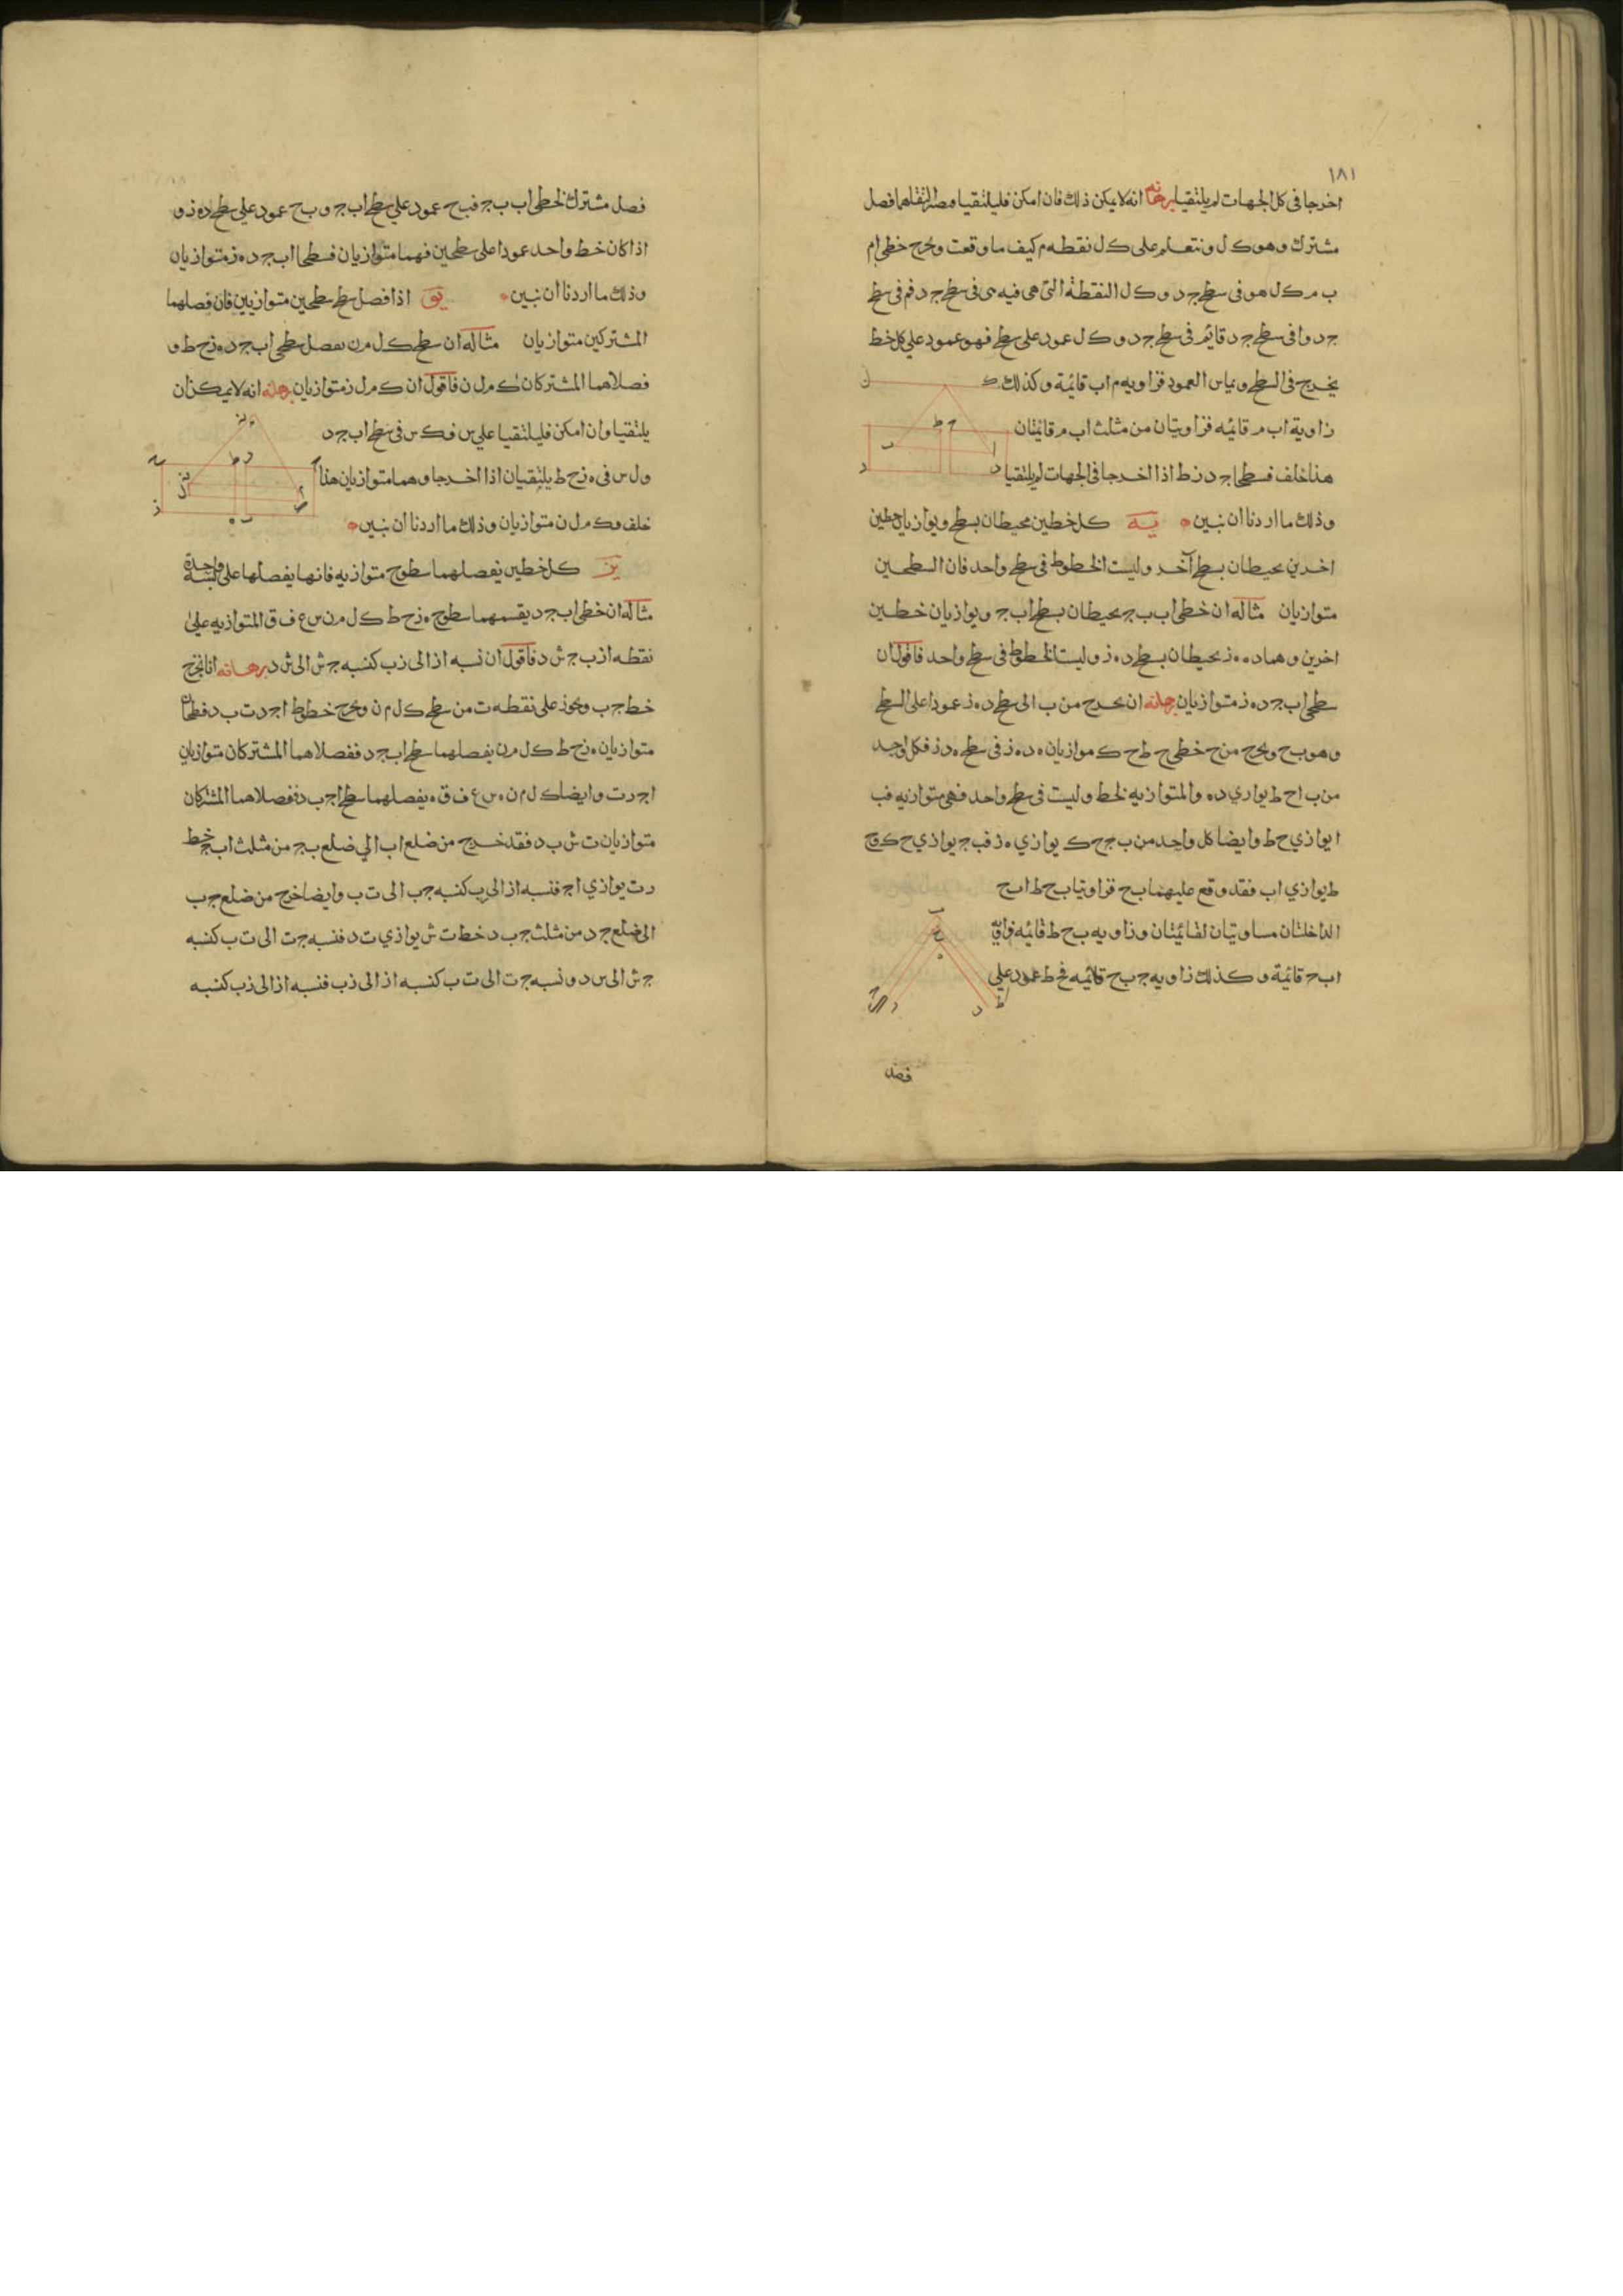 ١٨١
اخرجا فى كل الجهات لم يلتقيا برهانه انه لا يمكن ذلك فان امكن فليلتقيا فصل
مشترك وهو ك ل ونتعلم على ك ل نقطه م كيف ما وقعت ونخرج خطى ا م
ب م ك ل هو فى سطح ج د و ك ل النقطة التى هى فيه هى فى سطح ج د فم فى سطح
ج د وا فى سطح ج د قائم فى سطح ج د و ك ل عمود على سطح فهو عمود على كل خط
يخرج فى السطح ويماس العمود فزاويه م ا ب قائمة وكذلك
زاوية ا ب م قائمه فزاويتان من مثلث ا ب م قائمتان
هذا خلف فسطحا ج د ز ط اذا اخرجا فى الجهات لم يلتقيا
وذلك ما اردنا ان نبين يه كل خطين محيطان بسطح ويوازيان خطين
اخرين يحيطان بسطح آخر وليست الخطوط فى سطح واحد فان السطحين
متوازيان مثاله ان خطى ا ب ب ج يحيطان بسطح ا ب ج ويوازيان خطين
اخرين وهما د ه ه ز يحيطان بسطح د ه ز وليست الخطوط فى سطح واحد فاقول ان
سطحى ا ب ج د ه ز متوازيان برهانه ان نخرج من ب الى سطح د ه ز عمودا على السطح
وهو ب ح ونخرج من ح خطى ح ط ح ك موازيان ه د ه ز فى سطح ه د ز فكل واحد
من ب ا ح ط يوازي د ه والمتوازيه لخط وليست فى سطح واحد فهى متوازيه فب
ا يوازي ح ط وايضا كل واحد من ب ج ح ك يوازي ه ز فب ج يوازي ح ك وح
ط يوازي ا ب فقد وقع عليهما ب ح فزاويتا ب ح ط ا ب ح
الداخلتان مساويتان لقائمتان وزاويه ب ح ط قائمه فزاوية
ا ب ح قائمة وكذلك زاويه ج ب ح قائمه فخط عمود على
فصل
فصل مشترك لخطى ا ب ب ج فب ح عمود على سطح ا ب ج و ب ح عمود على سطح د ه ز و
اذا كان خط واحد عمودا على سطحين فهما متوازيان فسطحا ا ب ج د ه ز متوازيان
وذلك ما اردنا ان نبين يو اذا فصل سطح سطحين متوازيين فان فصلهما
المشتركين متوازيان مثاله ان سطح ك ل م ن يفصل سطحى ا ب ج د ه ز ح ط و
فصلاهما المشتركان ك م ل ن فاقول ان ك م ل ن متوازيان برهانه انه لا يمكن ان
يلتقيا وان امكن فليلتقيا على س فك س فى سطح ا ب ج د
و ل س فى ه ز ح ط يلتقيان اذا اخرجا وهما متوازيان هذا
خلف و ك م ل ن متوازيان وذلك ما اردنا ان نبين
يز كل خطين يفصلهما سطوح متوازيه فانها يفصلها على نسبة واحدة
مثاله ان خطى ا ب ج د يقسمهما سطوح ه ز ح ط ك ل م ن س ع ف ق المتوازيه على
نقطه ا ز ب ج ش د فاقول ان نسبه ا ز الى ز ب كنسبه ج ش الى ش د برهانه انا نخرج
خط ج ب ويجوز على نقطه ت من سطح ك ل م ن ونخرج خطوط ا ج ر ت ب د فسطحا
متوازيان ه ز ح ط ك ل م ن يفصلهما سطح ا ب ج د ففصلاهما المشتركان متوازيان
ا ج ر ت وايضا ك ل م ن ه س ع ف ق ه يفصلهما سطح ا ج ب د ففصلاهما المشتركان
متوازيان ت ش ب د فقد خرج من ضلع ا ب الى ضلع ب ج من مثلث ا ب ج خط
ر ت يوازي ا ج فنسبه ا ز الى ز ب كنسبه ج ب الى ت ب وايضا خرج من ضلع ج ب
الى ضلع ج د من مثلث ج ب د خط ت ش يوازي ت د فنسبه ج ت الى ت ب كنسبه
ج ش الى س د ونسبه ج ت الى ت ب كنسبه ا ز الى ز ب فنسبه ا ز الى ز ب كنسبه